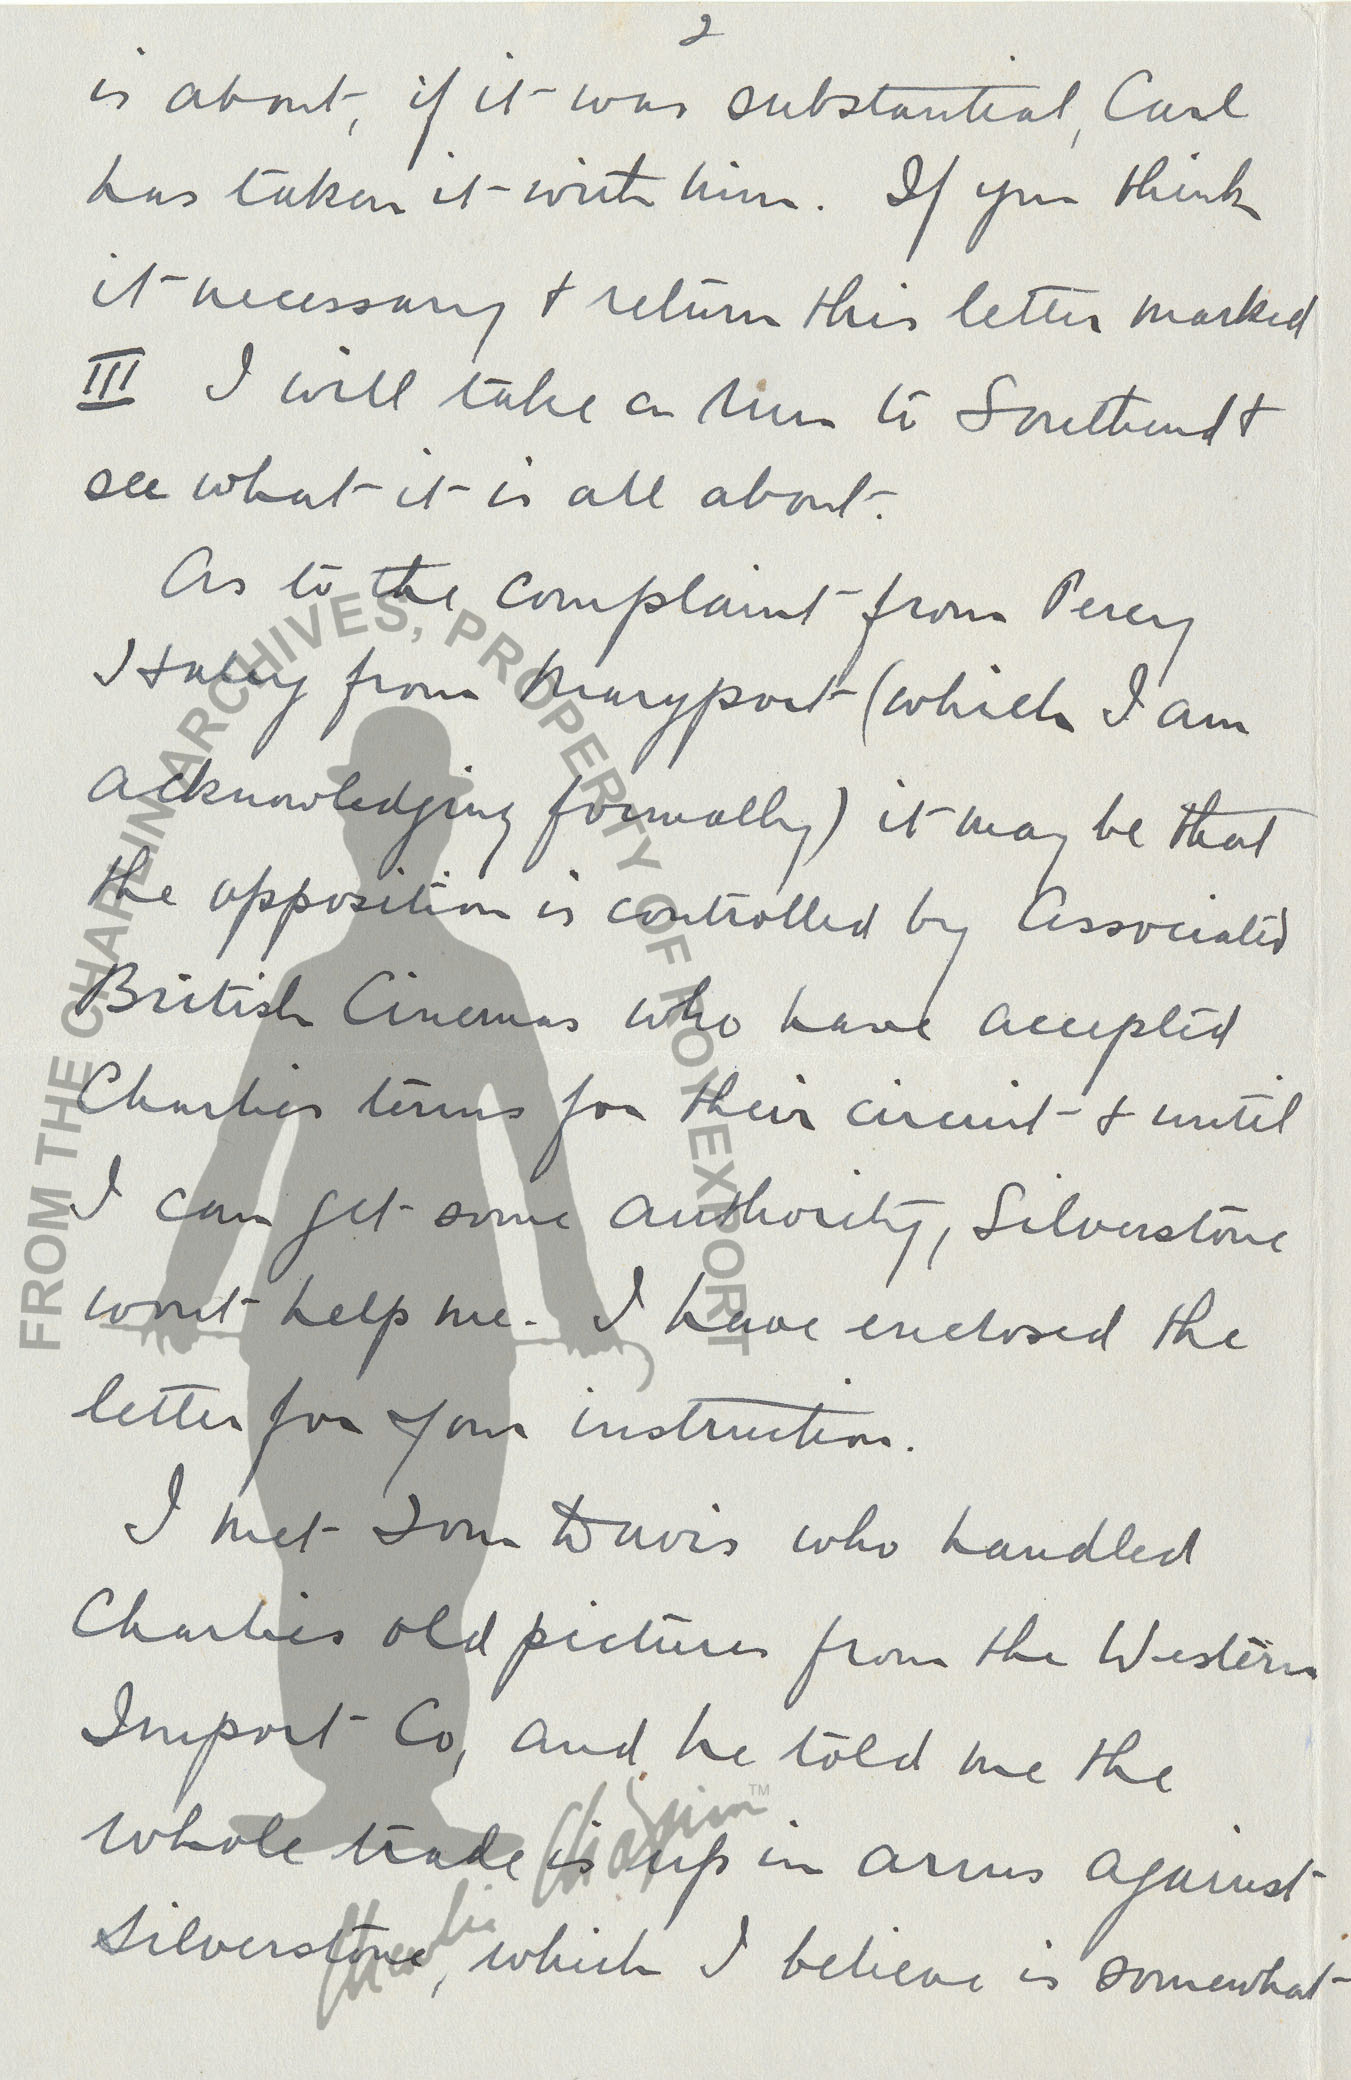 2
is about, if it was substantial, Carl
has taken it with him. If you think
it necessary & return this letter marked
III I will take a run to Southend &
see what it is all about.
As to the complaint from Percy
from Maryport (which I am
acknowledging formally) it may be that
the opposition is controlled by Associated
British Cinemas who have accepted
Charlies terms for their circuit & until
I can get some authority, Silverstone
wont help me. I have enclosed the
letter for your instruction.
I met Tom Davis who handled
Charlies old pictures from the Western
Import Co, and he told me the
whole trade is up in arms against
Silverstone, which I believe is somewhat
FROM THE CHAPLIN ARCHIVES, PROPERTY OF ROY EXPORT
Charlie Chaplin TM